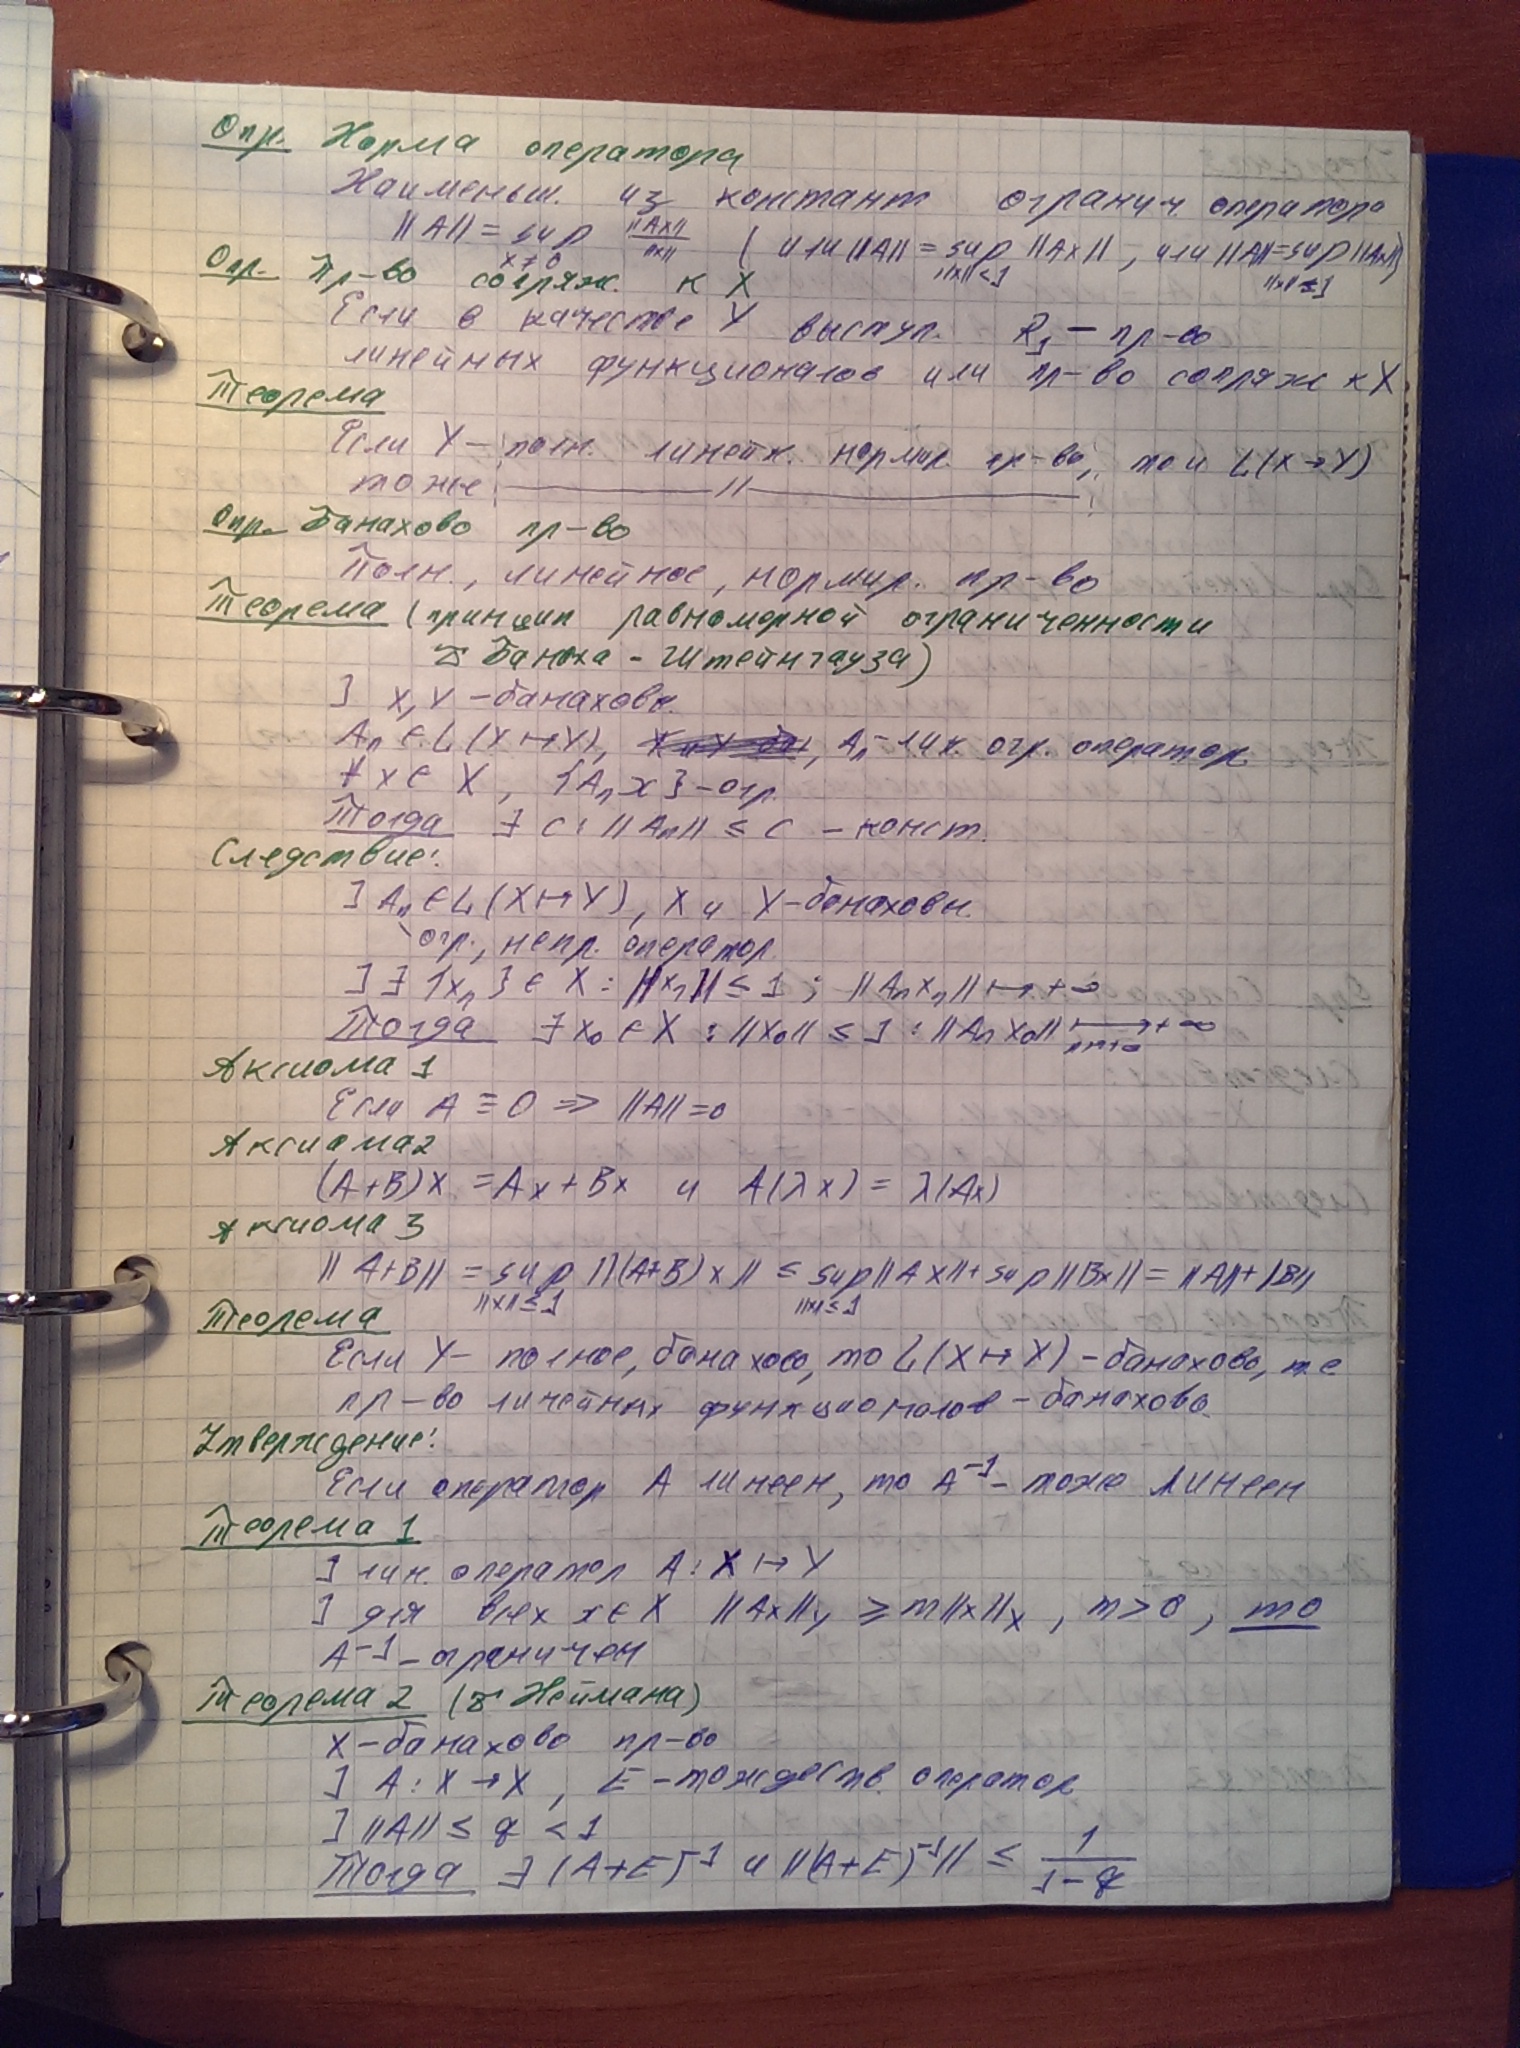 Опр. Норма оператора
Наименьш. из констант огранич. оператора
||A|| = sup x≠0 ||Ax||/||x|| ( или ||A|| = sup ||x||<1 ||Ax||, или ||A||=sup ||x||=1 ||Ax||)
Опр. Пр-во сопряж. к X
Если в качестве Y выступ. R₁ — пр-во
линейных функционалов или пр-во сопряж к X
Теорема
Если Y — полн. линейн. нормир. пр-во, то и L(X→Y)
тоже ——— // ———
Опр. Банахово пр-во
Полн., линейное, нормир. пр-во
Теорема (принцип равномерной ограниченности
Банаха - Штейнгауза)
] X, Y - банаховы.
Aₙ ∈ L(X↦Y), Aₙ - лин. огр. оператор
∀ x ∈ X, {Aₙ x} - огр.
Тогда ∃ C: ||Aₙ|| ≤ C - конст.
Следствие:
] Aₙ ∈ L(X↦Y), X и Y - банаховы.
огр., непр. оператор
] ∃ {xₙ} ∈ X : ||xₙ|| ≤ 1 ; ||Aₙxₙ|| ↦ +∞
Тогда ∃ x₀ ∈ X : ||x₀|| ≤ 1 : ||Aₙx₀|| ↦ +∞
Аксиома 1
Если A ≡ 0 => ||A||=0
Аксиома 2
(A+B)x = Ax+Bx и A(λx) = λ(Ax)
Аксиома 3
||A+B|| = sup ||x||≤1 ||(A+B)x|| ≤ sup ||x||≤1 ||Ax||+sup||Bx|| = ||A||+||B||
Теорема
Если Y - полное, банахово, то L(X↦X) - банахово, т.е
пр-во линейных функционалов - банахово.
Утверждение:
Если оператор A линеен, то A⁻¹ - тоже линеен
Теорема 1
] лин. оператор A: X ↦ Y
] для всех x ∈ X ||Ax||_Y ≥ m||x||_X, m>0, то
A⁻¹ - ограничен
Теорема 2 (Неймана)
X - банахово пр-во
] A: X → X, E - тождеств. оператор
] ||A|| ≤ q < 1
Тогда ∃ (A+E)⁻¹ и ||(A+E)⁻¹|| ≤ 1/(1-q)